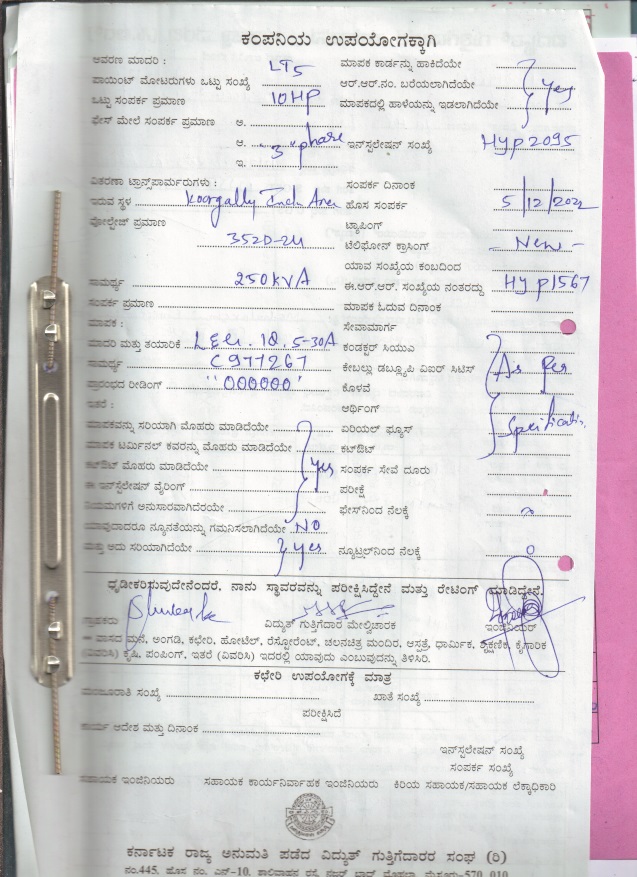 ಕಂಪನಿಯ ಉಪಯೋಗಕ್ಕಾಗಿ
ಆವರಣ ಮಾದರಿ : LT5 ಮಾಪಕ ಕಾರ್ಡನ್ನು ಹಾಕಿದೆಯೇ
ಪಾಯಿಂಟ್ ಮೋಟರುಗಳು ಒಟ್ಟು ಸಂಖ್ಯೆ ಆರ್.ಆರ್.ನಂ. ಬರೆಯಲಾಗಿದೆಯೇ Yes
ಒಟ್ಟು ಸಂಪರ್ಕ ಪ್ರಮಾಣ 10HP ಮಾಪಕದಲ್ಲಿ ಹಾಳೆಯನ್ನು ಇಡಲಾಗಿದೆಯೇ
ಫೇಸ್ ಮೇಲೆ ಸಂಪರ್ಕ ಪ್ರಮಾಣ ಅ.
ಆ. "3" phase ಇನ್‌ಸ್ಟಲೇಷನ್ ಸಂಖ್ಯೆ Hyp2095
ಇ.
ವಿತರಣಾ ಟ್ರಾನ್ಸ್‌ಫಾರ್ಮರುಗಳು : ಸಂಪರ್ಕ ದಿನಾಂಕ
ಇರುವ ಸ್ಥಳ Koorgally Indl Area ಹೊಸ ಸಂಪರ್ಕ 5/12/2022
ವೋಲ್ಟೇಜ್ ಪ್ರಮಾಣ ಟ್ಯಾಪಿಂಗ್
ಟೆಲಿಫೋನ್ ಕ್ರಾಸಿಂಗ್ - New -
ಯಾವ ಸಂಖ್ಯೆಯ ಕಂಬದಿಂದ
ಸಾಮರ್ಥ್ಯ 250KVA ಈ.ಆರ್.ಆರ್. ಸಂಖ್ಯೆಯ ನಂತರದ್ದು Hyp1567
ಸಂಪರ್ಕ ಪ್ರಮಾಣ ಮಾಪಕ ಓದುವ ದಿನಾಂಕ
ಮಾಪಕ : ಸೇವಾಮಾರ್ಗ
ಮಾದರಿ ಮತ್ತು ತಯಾರಿಕೆ 5-30A ಕಂಡಕ್ಟರ್ ಸಿಯುಎ
ಸಾಮರ್ಥ್ಯ C977267 ಕೇಬಲ್ಲು ಡಬ್ಲ್ಯೂಪಿ ಐಐರ್ ಸಿಟಿಸ್ As Per
ಪ್ರಾರಂಭದ ರೀಡಿಂಗ್ "000000" ಕೊಳವೆ
ಇತರೆ : ಆರ್ಥಿಂಗ್
ಮಾಪಕವನ್ನು ಸರಿಯಾಗಿ ಮೊಹರು ಮಾಡಿದೆಯೇ ಏರಿಯಲ್ ಫ್ಯೂಸ್
ಮಾಪಕ ಟರ್ಮಿನಲ್ ಕವರನ್ನು ಮೊಹರು ಮಾಡಿದೆಯೇ ಕಟ್‌ಔಟ್
ಕಟ್‌ಔಟ್ ಮೊಹರು ಮಾಡಿದೆಯೇ Yes ಸಂಪರ್ಕ ಸೇವೆ ದೂರು
ಈ ಇನ್‌ಸ್ಟಲೇಷನ್ ವೈರಿಂಗ್ ಪರೀಕ್ಷೆ
ನಿಯಮಗಳಿಗೆ ಅನುಸಾರವಾಗಿದೆಯೇ ಫೇಸ್‌ನಿಂದ ನೆಲಕ್ಕೆ
ಯಾವುದಾದರೂ ನ್ಯೂನತೆಯನ್ನು ಗಮನಿಸಲಾಗಿದೆಯೇ NO
ಮತ್ತು ಅದು ಸರಿಯಾಗಿದೆಯೇ Yes ನ್ಯೂಟ್ರಲ್‌ನಿಂದ ನೆಲಕ್ಕೆ 0
ಧೃಡೀಕರಿಸುವುದೇನೆಂದರೆ, ನಾನು ಸ್ಥಾವರವನ್ನು ಪರೀಕ್ಷಿಸಿದ್ದೇನೆ ಮತ್ತು ರೇಟಿಂಗ್ ಮಾಡಿದ್ದೇನೆ.
ಗ್ರಾಹಕರು ವಿದ್ಯುತ್ ಗುತ್ತಿಗೆದಾರ ಮೇಲ್ವಿಚಾರಕ ಇಂಜಿನಿಯರ್
ವಾಸದ ಮನೆ, ಅಂಗಡಿ, ಕಛೇರಿ, ಹೋಟೆಲ್, ರೆಸ್ಟೋರೆಂಟ್, ಚಲನಚಿತ್ರ ಮಂದಿರ, ಆಸ್ಪತ್ರೆ, ಧಾರ್ಮಿಕ, ಶೈಕ್ಷಣಿಕ, ಕೈಗಾರಿಕ
(ವಿವರಿಸಿ) ಕೃಷಿ, ಪಂಪಿಂಗ್, ಇತರೆ (ವಿವರಿಸಿ) ಇದರಲ್ಲಿ ಯಾವುದು ಎಂಬುವುದನ್ನು ತಿಳಿಸಿರಿ.
ಕಛೇರಿ ಉಪಯೋಗಕ್ಕೆ ಮಾತ್ರ
ಮಂಜೂರಾತಿ ಸಂಖ್ಯೆ ಖಾತೆ ಸಂಖ್ಯೆ
ಪರೀಕ್ಷಿಸಿದೆ
ಕಾರ್ಯ ಆದೇಶ ಮತ್ತು ದಿನಾಂಕ
ಇನ್‌ಸ್ಟಲೇಷನ್ ಸಂಖ್ಯೆ
ಸಂಪರ್ಕ ಸಂಖ್ಯೆ
ಸಹಾಯಕ ಇಂಜಿನಿಯರು ಸಹಾಯಕ ಕಾರ್ಯನಿರ್ವಾಹಕ ಇಂಜಿನಿಯರು ಕಿರಿಯ ಸಹಾಯಕ/ಸಹಾಯಕ ಲೆಕ್ಕಾಧಿಕಾರಿ
ಕರ್ನಾಟಕ ರಾಜ್ಯ ಅನುಮತಿ ಪಡೆದ ವಿದ್ಯುತ್ ಗುತ್ತಿಗೆದಾರರ ಸಂಘ (ರಿ)
ನಂ.445, ಹೊಸ ನಂ. ಎನ್-10,